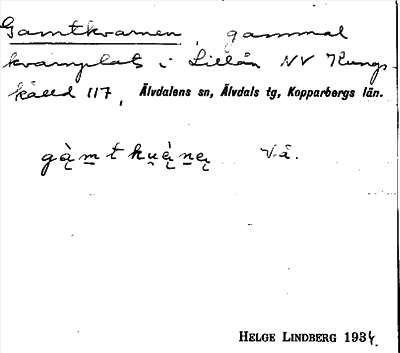 Gamtkvarnen, gammal
kvarnplats i Lillån NV Kungs-
håled 117, Älvdalens sn, Älvdals tg, Kopparbergs län.
gą̀m̲t ku̯ę̀n̲ę Vå.
HELGE LINDBERG 1934.